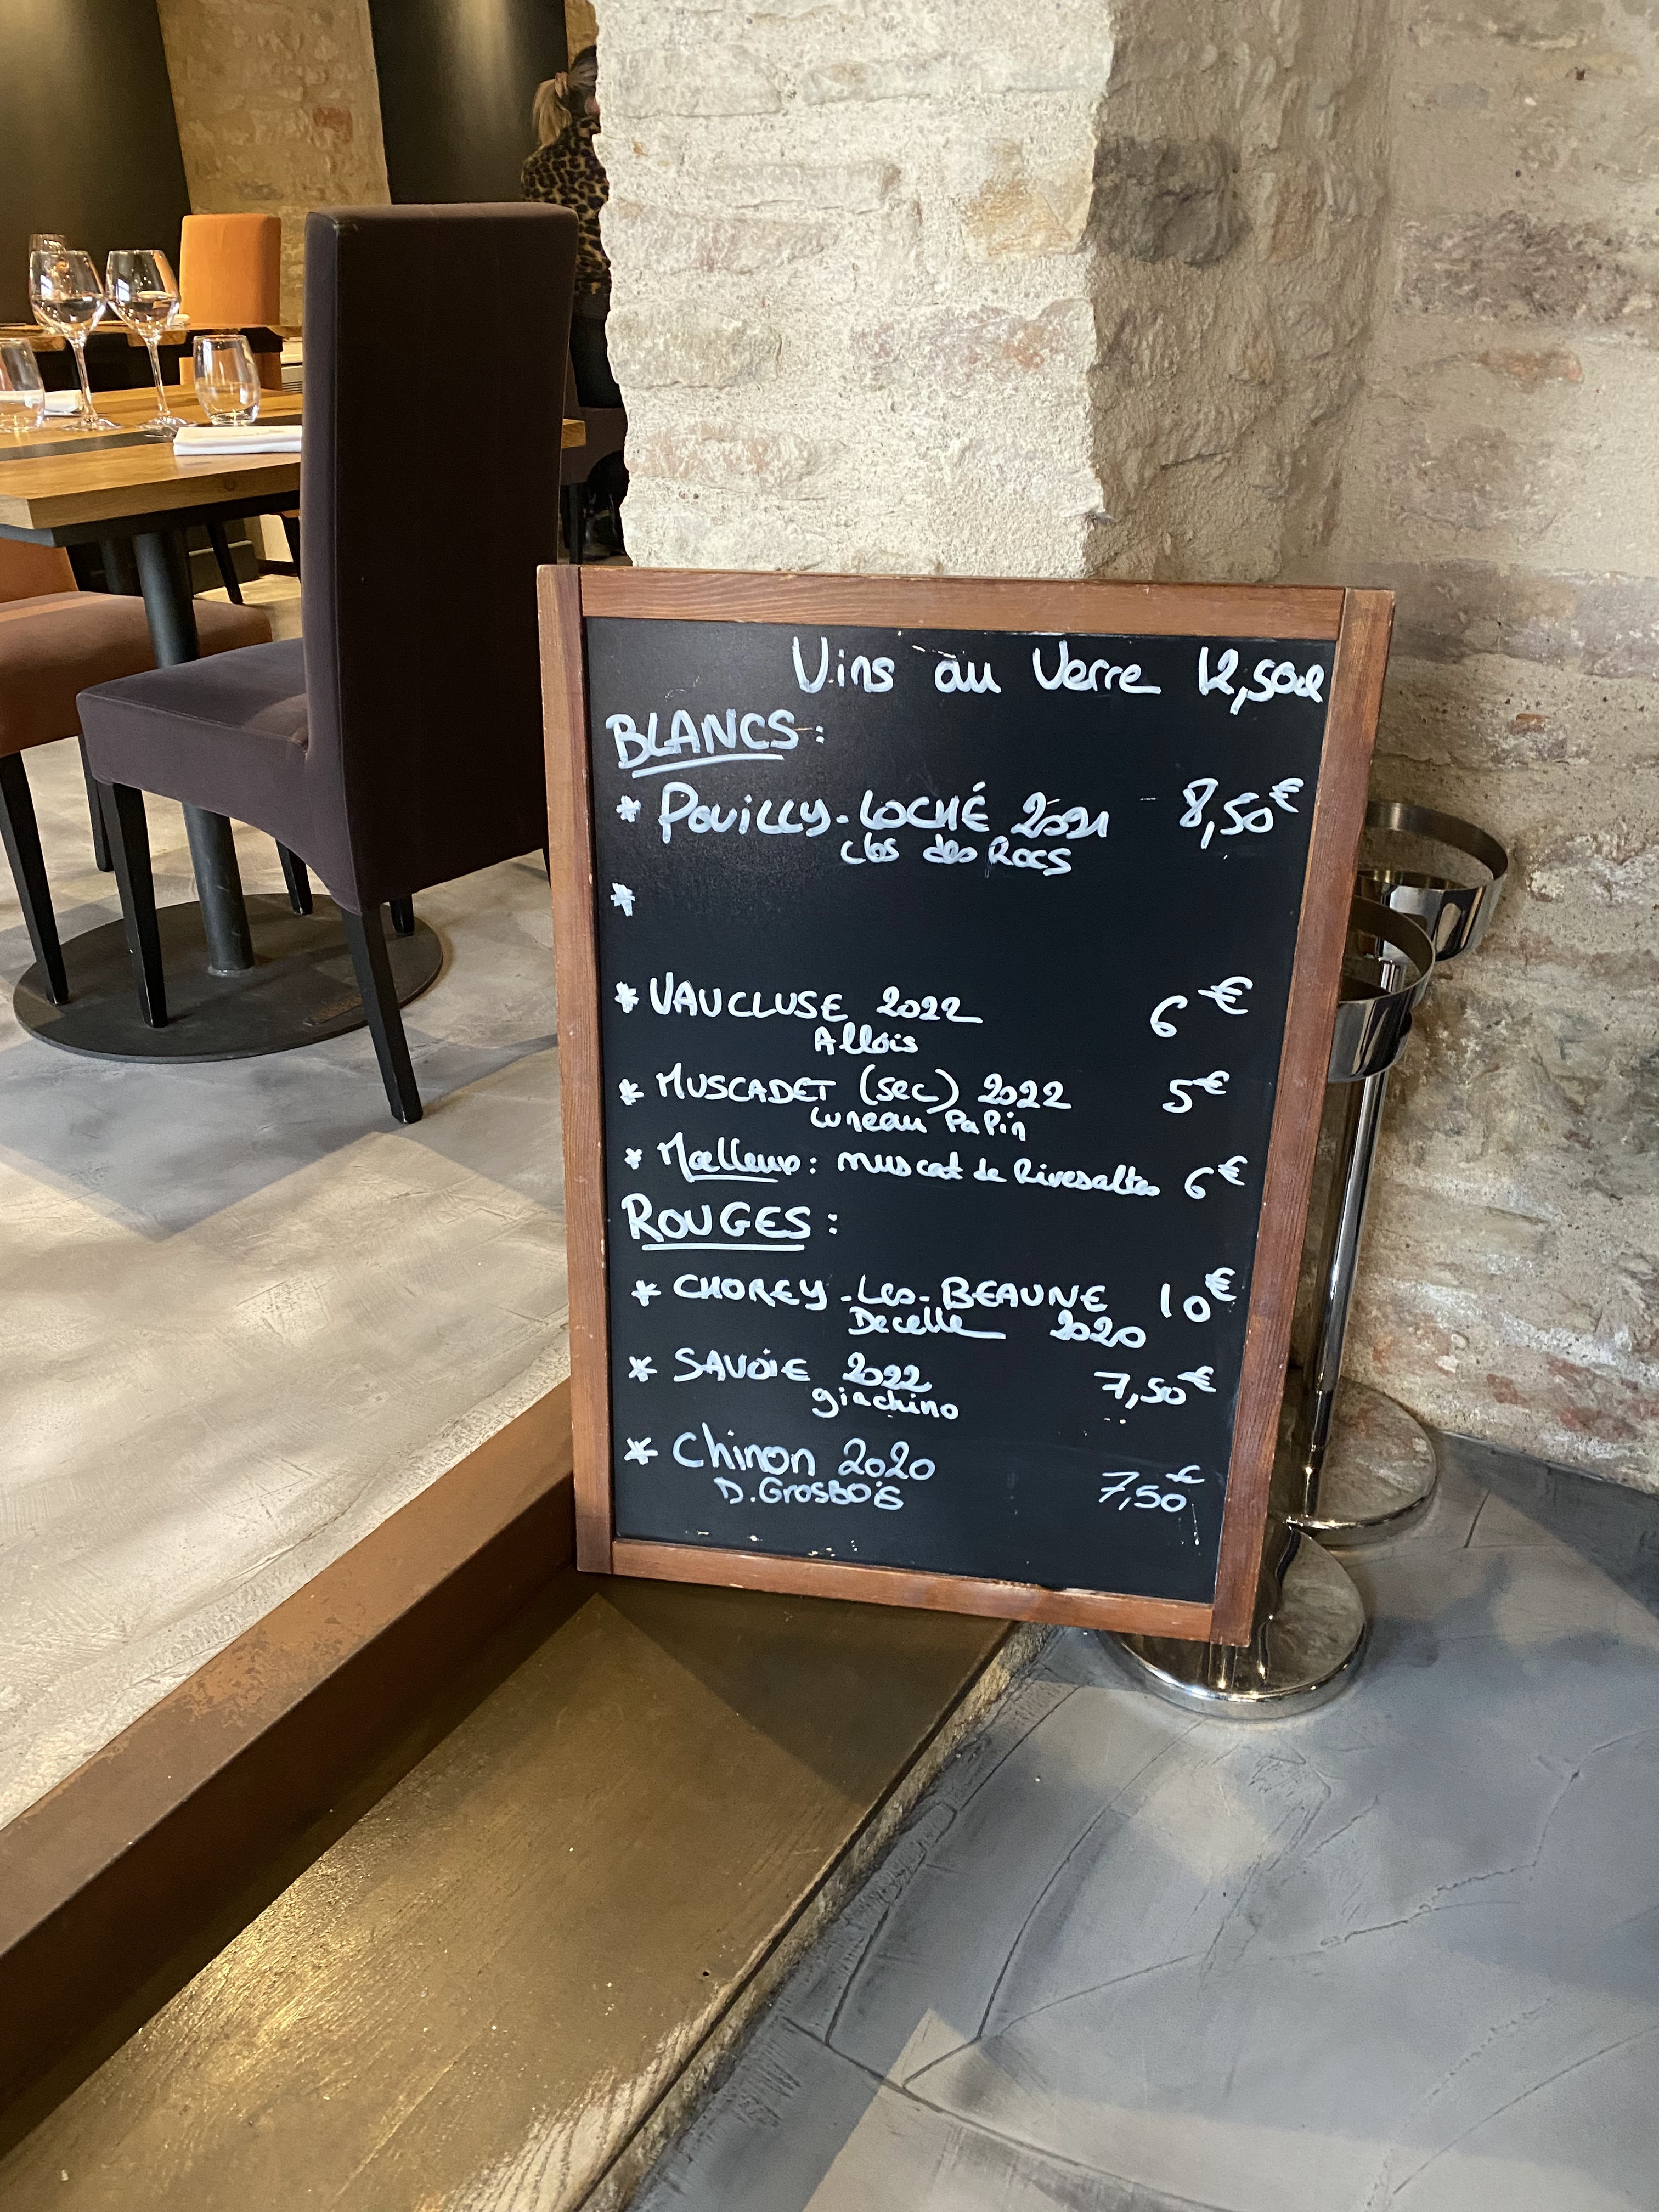 Vins au Verre 12,50cl
BLANCS :
* POUILLY-LOCHÉ 2021 8,50€
Clos des Rocs
*
* VAUCLUSE 2022 6€
Allois
* MUSCADET (sec) 2022 5€
Luneau PaPin
* Moelleux : muscat de Rivesaltes 6€
ROUGES :
* CHOREY-Les-BEAUNE 10€
Decelle 2020
* SAVOIE 2022 7,50€
giachino
* Chinon 2020
D. GrosBois 7,50€